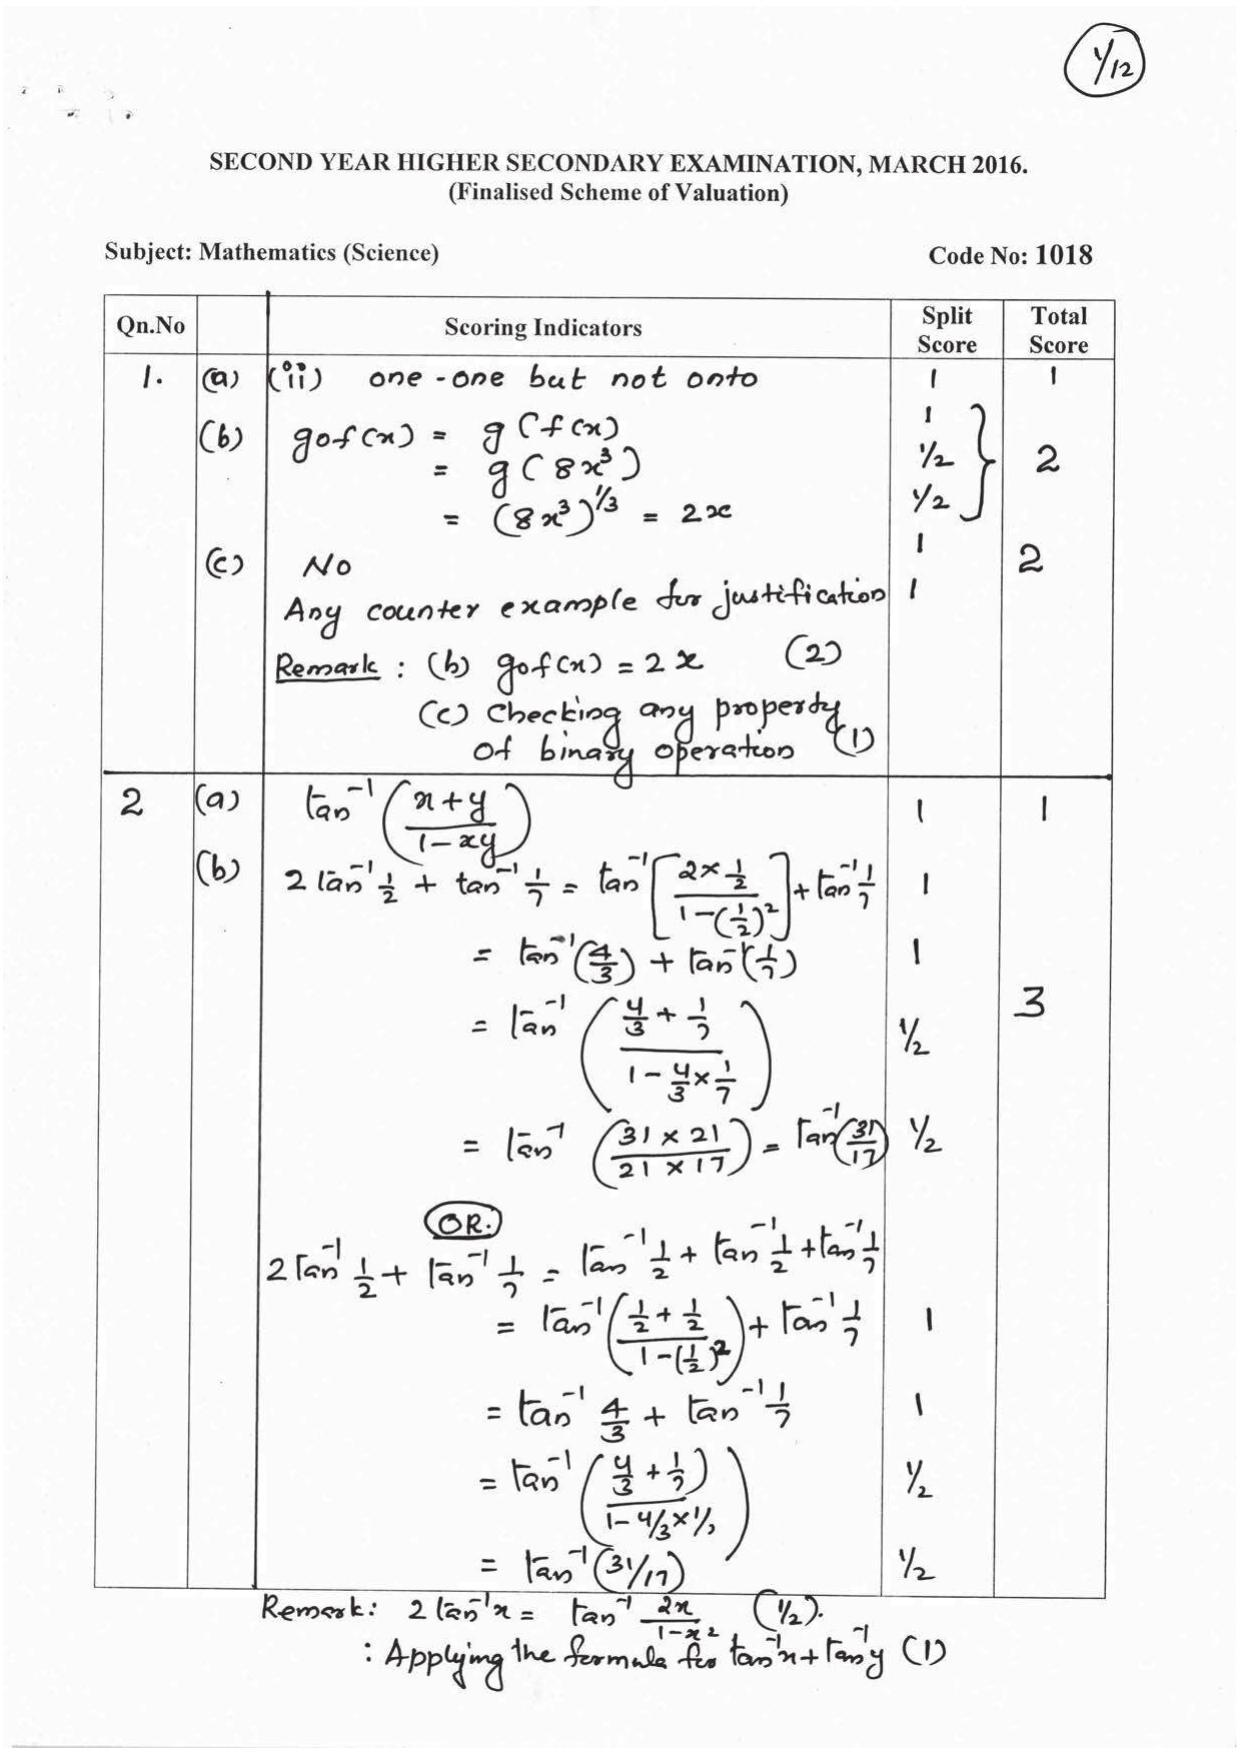 1/12
SECOND YEAR HIGHER SECONDARY EXAMINATION, MARCH 2016.
(Finalised Scheme of Valuation)
Subject: Mathematics (Science) Code No: 1018
Qn.No Scoring Indicators Split Score Total Score
1. (a) (ii) one-one but not onto 1 1
(b) gof(x) = g(f(x) 1
= g(8x³) 1/2 2
= (8x³)^1/3 = 2x 1/2
(c) No 1 2
Any counter example for justification 1
Remark : (b) gof(x) = 2x (2)
(c) checking any property
of binary operation (1)
2 (a) tan⁻¹((x+y)/(1-xy)) 1 1
(b) 2 tan⁻¹ 1/2 + tan⁻¹ 1/7 = tan⁻¹[(2×1/2)/(1-(1/2)²)] + tan⁻¹ 1/7 1
= tan⁻¹(4/3) + tan⁻¹(1/7) 1
= tan⁻¹((4/3 + 1/7)/(1 - 4/3 × 1/7)) 1/2 3
= tan⁻¹((31 × 21)/(21 × 17)) = tan⁻¹(31/17) 1/2
OR.
2 tan⁻¹ 1/2 + tan⁻¹ 1/7 = tan⁻¹ 1/2 + tan⁻¹ 1/2 + tan⁻¹ 1/7
= tan⁻¹((1/2 + 1/2)/(1-(1/2)²)) + tan⁻¹ 1/7 1
= tan⁻¹ 4/3 + tan⁻¹ 1/7 1
= tan⁻¹((4/3 + 1/7)/(1 - 4/3 × 1/7)) 1/2
= tan⁻¹(31/17) 1/2
Remark: 2 tan⁻¹x = tan⁻¹ 2x/(1-x²) (1/2).
: Applying the formula for tan⁻¹x + tan⁻¹y (1)